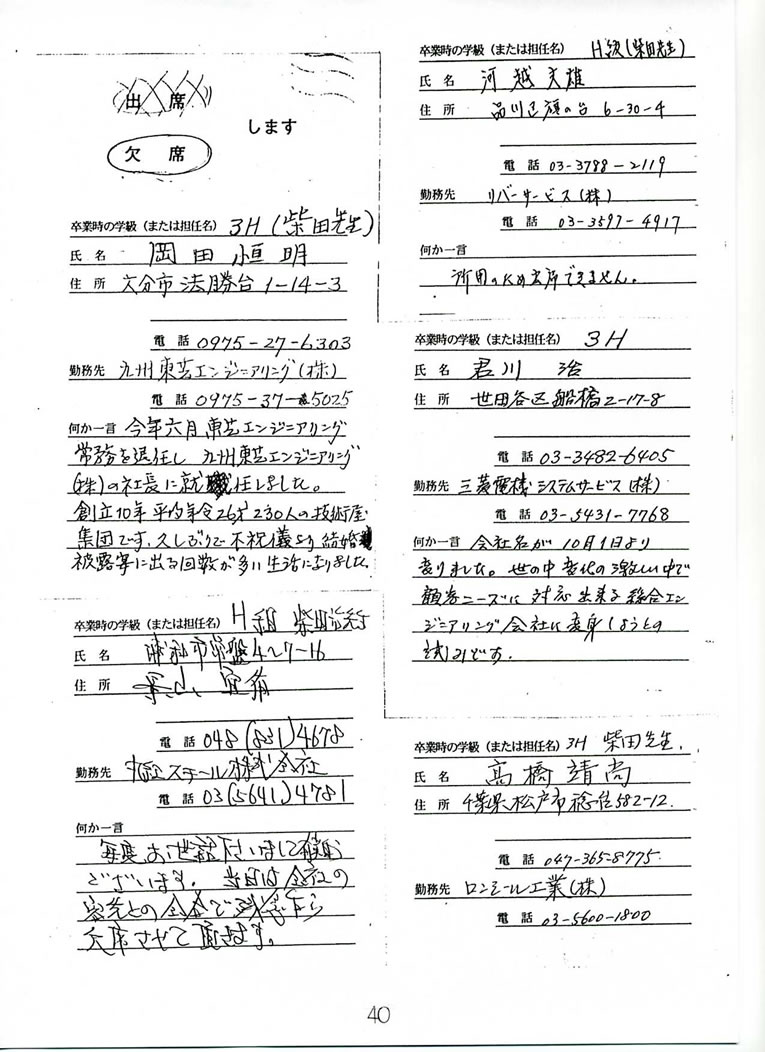 出席
します
欠席
卒業時の学級（または担任名） 3H（柴田先生）
氏名 岡田恒明
住所 大分市法勝台1-14-3
電話 0975-27-6303
勤務先 九州東芝エンジニアリング（株）
電話 0975-37-5025
何か一言 今年六月東芝エンジニアリング
常務を退任し 九州東芝エンジニアリング
（株）の社長に就任しました。
創立10年平均年令26才230人の技術屋
集団です。久しぶりで不祝儀より結婚
披露宴に出る回数が多い生活になりました。
卒業時の学級（または担任名） H組 柴田先生
氏名 浦和市常盤4-7-16
住所
電話 048(831)4678
勤務先 スチール株式会社
電話 03(5641)4781
何か一言
毎度お世話下さいまして有難う
ございます。当日は会社の
客先との会合で
欠席させて頂きます。
卒業時の学級（または担任名） H級（柴田先生）
氏名 河越文雄
住所 品川区旗の台 6-30-4
電話 03-3788-2119
勤務先 リバーサービス（株）
電話 03-3597-4917
何か一言
所用のため出席できません。
卒業時の学級（または担任名） 3H
氏名 君川 治
住所 世田谷区船橋2-17-8
電話 03-3482-6405
勤務先 三菱電機システムサービス（株）
電話 03-5431-7768
何か一言 会社名が10月1日より
変りました。世の中変化の激しい中で
顧客ニーズに対応出来る総合エン
ジニアリング会社に変身しようとの
試みです。
卒業時の学級（または担任名） 3H 柴田先生.
氏名 高橋靖尚
住所 千葉県松戸市稔台582-12.
電話 047-365-8775.
勤務先 ロンシール工業（株）
電話 03-5600-1800
40